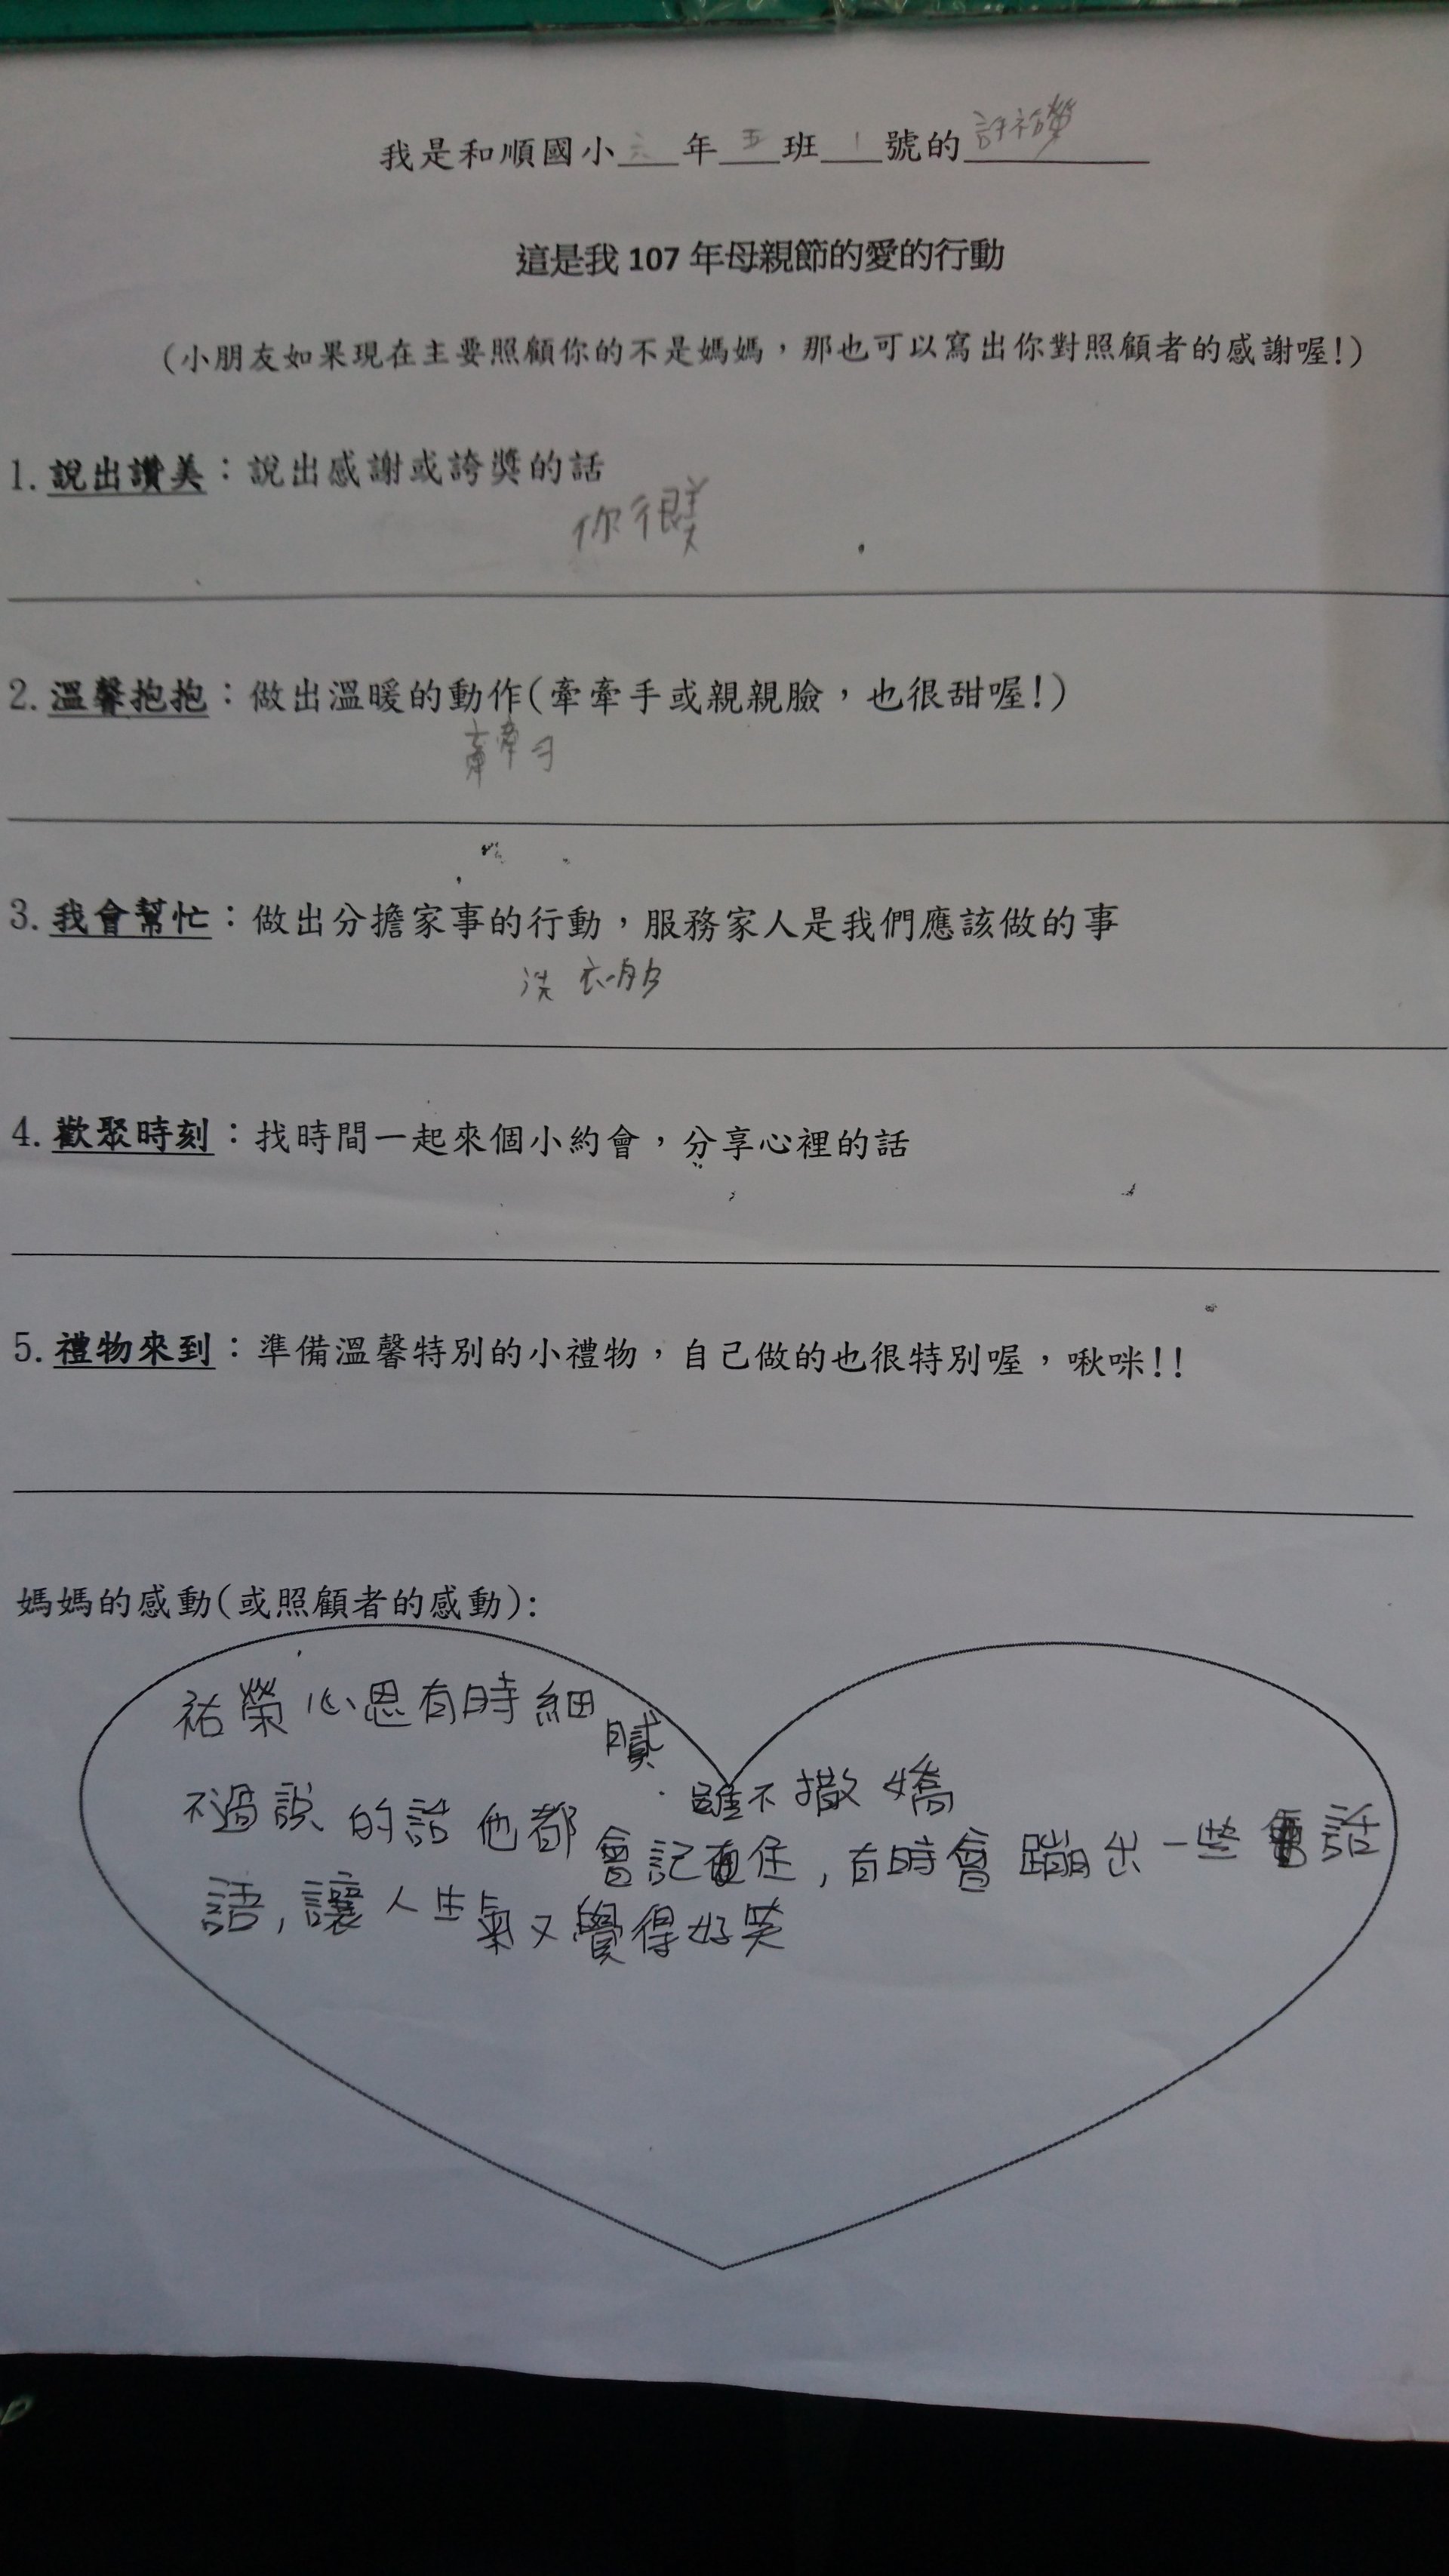 我是和順國小六年五班1號的許祐榮
這是我107年母親節的愛的行動
(小朋友如果現在主要照顧你的不是媽媽，那也可以寫出你對照顧者的感謝喔!)
1.說出讚美：說出感謝或誇獎的話
你很美
2.溫馨抱抱：做出溫暖的動作(牽牽手或親親臉，也很甜喔!)
牽牽手
3.我會幫忙：做出分擔家事的行動，服務家人是我們應該做的事
洗衣服
4.歡聚時刻：找時間一起來個小約會，分享心裡的話
5.禮物來到：準備溫馨特別的小禮物，自己做的也很特別喔，啾咪!!
媽媽的感動(或照顧者的感動):
祐榮心思有時細膩
雖不撒嬌
不過說的話他都會記住,有時會蹦出一些話
語,讓人生氣又覺得好笑